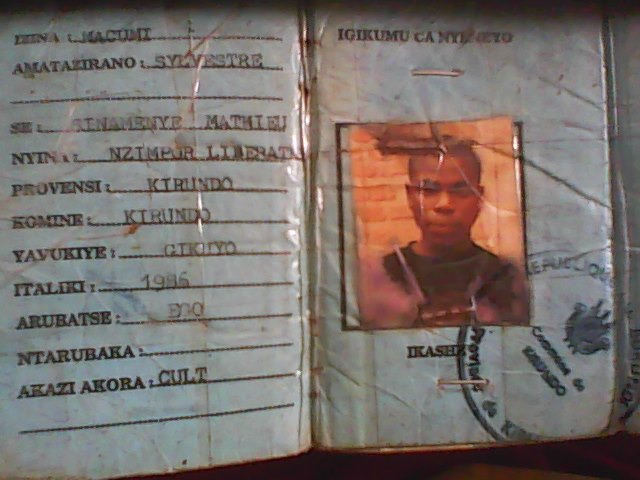 IZINA : MACUMI
AMATAZIRANO : SYLVESTRE
SE : SINAMENYE MATHIEU
NYINA : NZIMPOR LIBERAT
PROVENSI : KIRUNDO
KOMINE : KIRUNDO
YAVUKIYE :
ITALIKI : 1986
ARUBATSE :
NTARUBAKA :
AKAZI AKORA : CULT
IGIKUMU CA NYENEYO
REPUBLIQUE
Commune de
Province de